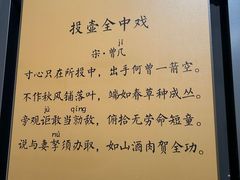 投壶全中戏
jī
宋·曾几
寸心只在所投中，出手何曾一箭空。
不作秋风铺落叶，端如春草种成丛。
jù qíng
旁观讵敢当勍敌，俯拾无劳命短童。
nú
说与妻孥须办取，如山酒肉贺全功。